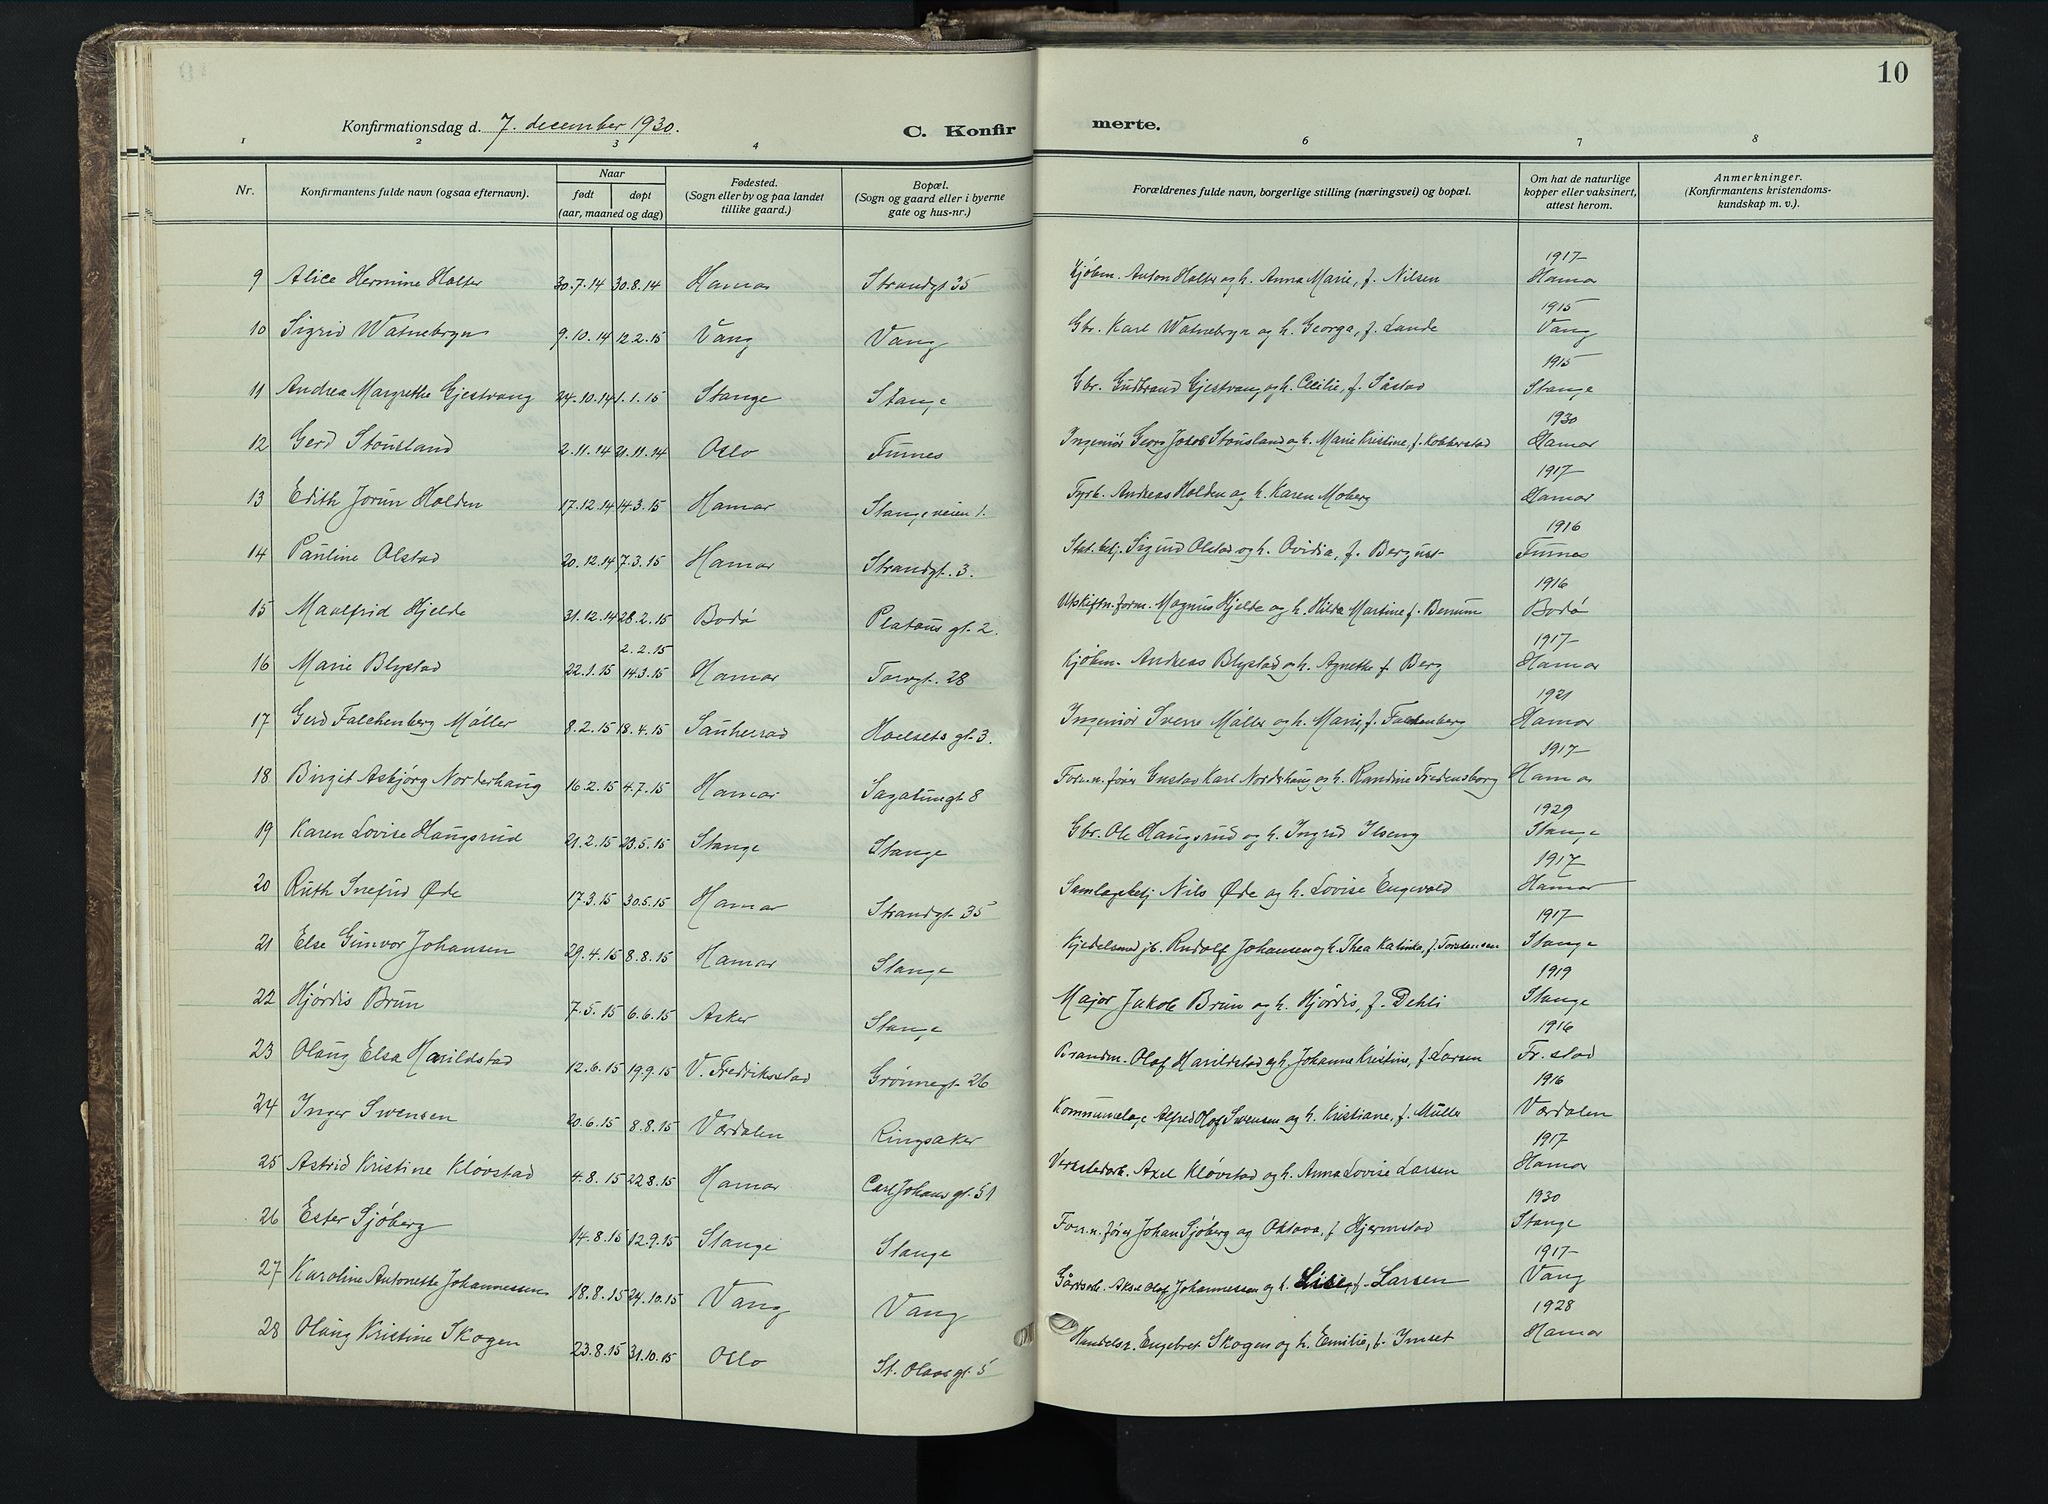 10
Konfirmationsdag d. 7. december 1930.
C. Konfirmerte.
1 2 3 4 6 7 8
Nr. Konfirmantens fulde navn (ogsaa efternavn). Naar født døpt (aar, maaned og dag) Fødested. (Sogn eller by og paa landet tillike gaard.) Bopæl. (Sogn og gaard eller i byerne gate og hus-nr.) Forældrenes fulde navn, borgerlige stilling (næringsvei) og bopæl. Om hat de naturlige kopper eller vaksinert, attest herom. Anmerkninger. (Konfirmantens kristendoms-kundskap m. v.).
9 Alice Hermine Holter 30.7.14 30.8.14 Hamar Strandgt 35 Kjøbm. Anton Holter og h. Anna Marie, f. Nilsen 1917 Hamar
10 Sigrid Watnebryn 9.10.14 12.2.15 Vang Vang Gbr. Karl Watnebryn og h. Georga, f. Lande 1915 Vang
11 Andrea Margrethe Gjestvang 24.10.14 1.1.15 Stange Stange Gbr. Gudbrand Gjestvang og h. Cecilie, f. Såstad 1915 Stange
12 Gerd Stousland 2.11.14 21.11.14 Oslo Furnes Ingeniør Georg Jakob Stousland og h. Marie Kristine, f. Kobberstad 1930 Hamar
13 Edith Jorun Holden 17.12.14 14.3.15 Hamar Stangeveien 1. Fyrb. Andreas Holden og h. Karen Moberg 1917 Hamar
14 Pauline Olstad 20.12.14 7.3.15 Hamar Strandgt. 3. Stat. betj. Sigurd Olstad og h. Ovidia, f. Bergust 1916 Furnes
15 Maalfrid Hjelde 31.12.14 28.2.15 Bodø Platous gt. 2. Utskiftn. form. Magnus Hjelde og h. Hilda Martine f. Benum 1916 Bodø
16 Marie Blystad 22.1.15 2.2.15 14.3.15 Hamar Torvgt. 28 Kjøbm. Andreas Blystad og h. Agnethe f. Berg 1917 Hamar
17 Gerd Falchenberg Møller 8.2.15 18.4.15 Sauherad Hoelsets gt. 3. Ingeniør Sverre Møller og h. Marie, f. Falchenberg 1921 Hamar
18 Birgit Asbjørg Norderhaug 16.2.15 4.7.15 Hamar Sagatungt 8 Forr.n. fører Gustav Karl Norderhaug og h. Randine Fredensborg 1917 Hamar
19 Karen Lovise Haugsrud 21.2.15 23.5.15 Stange Stange Gbr. Ole Haugsrud og h. Ingrid Ilseng 1929 Stange
20 Ruth Snefrid Øde 17.3.15 30.5.15 Hamar Strandgt. 35 Samlagsbetj Nils Øde og h. Lovise Engevold 1917 Hamar
21 Else Gunvor Johansen 29.4.15 8.8.15 Hamar Stange Kjedelsmed jb. Rudolf Johansen og h. Thea Katinka, f. Torstensen 1917 Stange
22 Hjørdis Brun 7.5.15 6.6.15 Asker Stange Major Jakob Brun og h. Hjørdis, f. Dehli 1919 Stange
23 Olaug Elsa Harildstad 12.6.15 19.9.15 V. Fredriksstad Grønnegt. 26 Brandm. Olaf Harildstad og h. Johanne Kristine, f. Larsen 1916 Fr. stad
24 Inger Swensen 20.6.15 8.8.15 Værdalen Ringsaker Kommunelæge Alfred Hof Swensen og h. Kristiane, f. Müller 1916 Værdalen
25 Astrid Kristine Kløvstad 4.8.15 22.8.15 Hamar Carl Johans gt. 51 Verkstedarb. Axel Kløvstad og h. Anna Lovise Larsen 1917 Hamar
26 Ester Sjøberg 14.8.15 12.9.15 Stange Stange Forr.n. fører Johan Sjøberg og Oktava, f Hjermstad 1930 Stange
27 Karoline Antonette Johannessen 18.8.15 24.10.15 Vang Vang Gårdsarb. Aksel Olaf Johannessen og h. Lise, f. Larsen 1917 Vang
28 Olaug Kristine Skogen 23.8.15 31.10.15 Oslo St. Olavs gt. 5 Handelsr. Engebret Skogen og h. Emilie, f. Imset 1928 Hamar